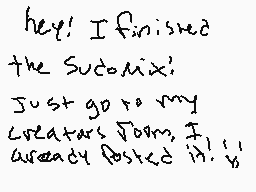 hey! I finished
the Sudomix!
Just go to my
creators room, I
aready Posted it!!